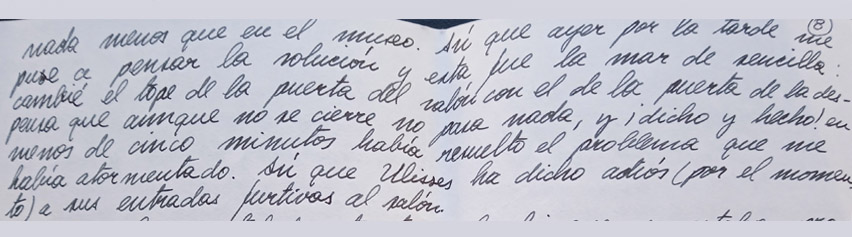 (8)
nada menos que en el museo. Así que ayer por la tarde me
puse a pensar la solución y esta fue la mar de sencilla:
cambié el tope de la puerta del salón con el de la puerta de la des-
pensa que aunque no se cierre no pasa nada, y ¡dicho y hecho! en
menos de cinco minutos había resuelto el problema que me
había atormentado. Así que Ulisses ha dicho adiós (por el momen-
to) a sus entradas furtivas al salón.